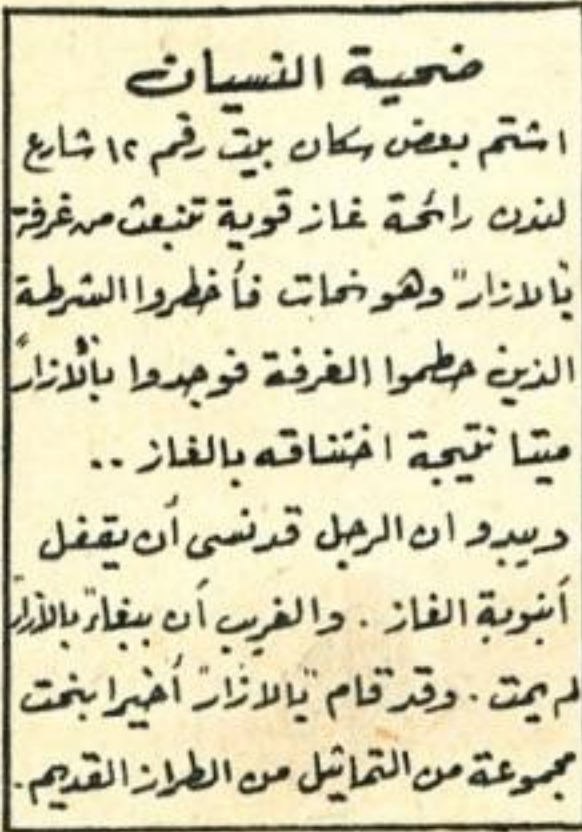 ضحية النسيان
اشتم بعض سكان بيت رقم ١٢ شارع
لندن رائحة غاز قوية تنبعث من غرفة
"بالازار" وهو نحات فأخطروا الشرطة
الذين حطموا الغرفة فوجدوا "بالازار"
ميتا نتيجة اختناقه بالغاز ..
ويبدو ان الرجل قد نسى أن يقفل
أنبوبة الغاز . والغريب أن ببغاء "بالازار"
لم يمت . وقد قام "بالازار" أخيرا بنحت
مجموعة من التماثيل من الطراز القديم .